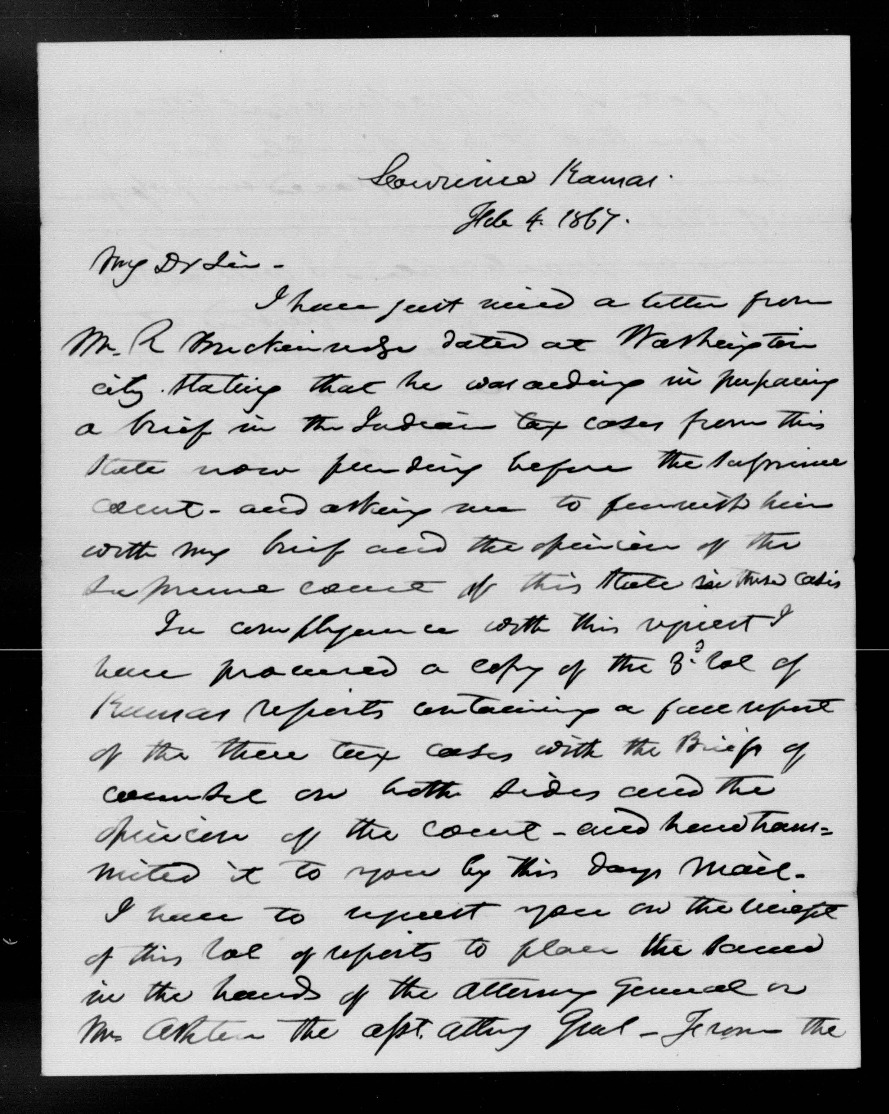 Lawrence Kansas.
Feb 4. 1867.
My Dr Sir -
I have just recd a letter from
Mr. R Breckinridge dated at Washington
city stating that he was aiding in preparing
a brief in the Indian tax cases from this
State now pending before the Supreme
court - and asking me to furnish him
with my brief and the opinion of the
Supreme court of this State in these cases
In complyance with this request I
have procured a copy of the 3d Vol of
Kansas reports containing a full report
of the three tax cases with the Briefs of
counsel on both sides and the
opinion of the court - and have trans=
mited it to you by this days mail.
I have to request you on the receipt
of this Vol of reports to place the same
in the hands of the Attorney General or
Mr Ashton the asst. attny Genl - From the